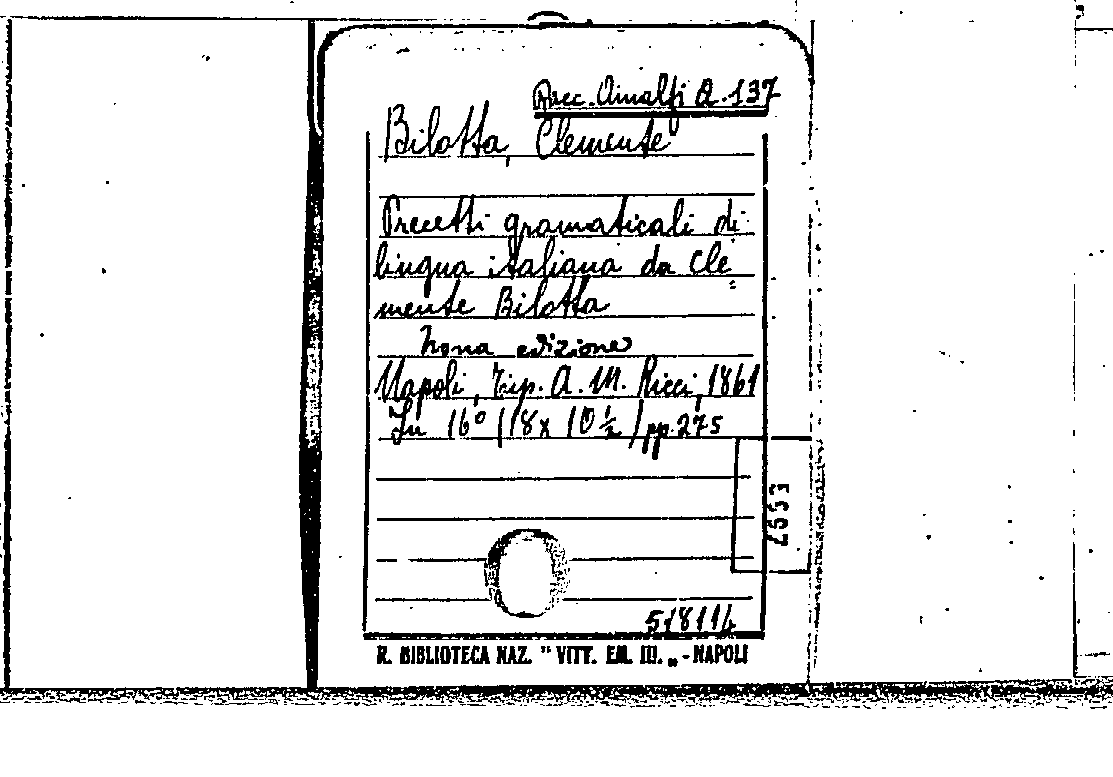 Racc. Amalfi A. 137
Bilotta, Clemente
Precetti gramaticali di
lingua italiana da Cle
=
mente Bilotta
Nona edizione
Napoli, Tip. A. M. Ricci, 1861
In 16° (18 x 10 ½) pp. 275
518114
R. BIBLIOTECA NAZ. " VITT. EM. III. „ - NAPOLI